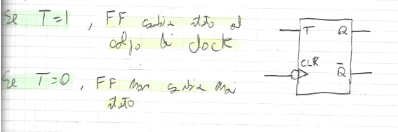 Se T=1, FF cambia stato al
colpo di clock
Se T=0, FF non cambia mai
stato
T Q
CLK Q̅